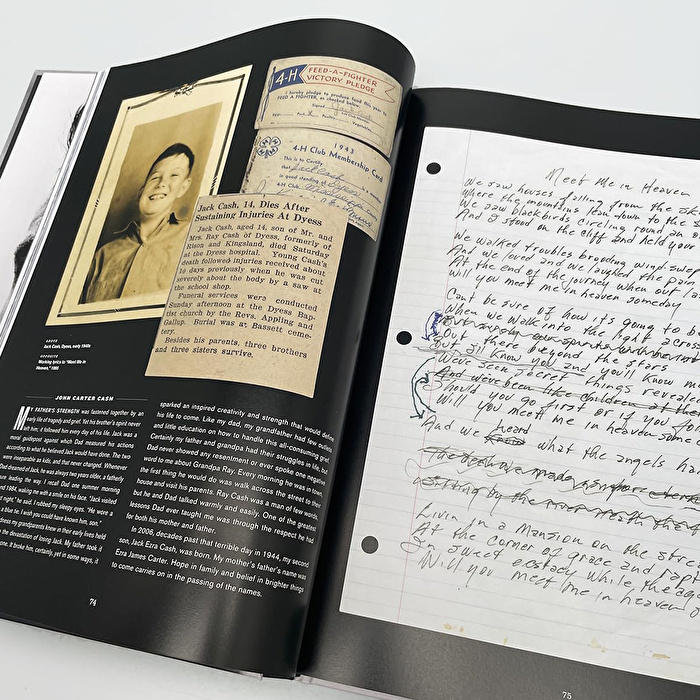 4-H FEED-A-FIGHTER
VICTORY PLEDGE
I hereby pledge to produce food this year to
FEED A FIGHTER, as checked below.
Signed
1943
4-H Club Membership Card
This is to Certify
that Jack Cash
in good standing of Dyess
4-H Club
Jack Cash, 14, Dies After
Sustaining Injuries At Dyess
Jack Cash, aged 14, son of Mr. and
Mrs. Ray Cash of Dyess, formerly of
Rison and Kingsland, died Saturday
at the Dyess hospital. Young Cash's
death followed injuries received about
10 days previously when he was cut
severely about the body by a saw at
the school shop.
Funeral services were conducted
Sunday afternoon at the Dyess Bap-
tist church by the Revs. Appling and
Gallup. Burial was at Bassett ceme-
tery.
Besides his parents, three brothers
and three sisters survive.
ABOVE
Jack Cash, Dyess, early 1940s
OPPOSITE
Working lyrics to "Meet Me in
Heaven," 1995
JOHN CARTER CASH
MY FATHER'S STRENGTH was fastened together by an
early life of tragedy and grief. Yet his brother's spirit never
left him; it followed him every day of his life. Jack was a
moral guidepost against which Dad measured his actions
according to what he believed Jack would have done. The two
were inseparable as kids, and that never changed. Whenever
Dad dreamed of Jack, he was always two years older, a fatherly
figure leading the way. I recall Dad one summer morning
in 1984, waking me with a smile on his face. "Jack visited
last night," he said. I rubbed my sleepy eyes. "He wore a
a blue tie. I wish you could have known him, son."
sadness my grandparents knew in their early lives held
the devastation of losing Jack. My father took it
. It broke him, certainly, yet in some ways, it
sparked an inspired creativity and strength that would define
his life to come. Like my dad, my grandfather had few outlets
and little education on how to handle this all-consuming grief.
Certainly my father and grandpa had their struggles in life, but
Dad never showed any resentment or ever spoke one negative
word to me about Grandpa Ray. Every morning he was in town,
the first thing he would do was walk across the street to their
house and visit his parents. Ray Cash was a man of few words,
but he and Dad talked warmly and easily. One of the greatest
lessons Dad ever taught me was through the respect he had
for both his mother and father.
In 2006, decades past that terrible day in 1944, my second
son, Jack Ezra Cash, was born. My mother's father's name was
Ezra James Carter. Hope in family and belief in brighter things
to come carries on in the passing of the names.
74
Meet Me in Heaven
We saw houses falling from the sky
Where the mountains lean down to the s
We saw blackbirds circling round an
And I stood on the cliff and held your
We walked troubles brooding wind swe
And we loved and we laughed the pain
At the end of the journey when our
Will you meet me in heaven someday
Cant be sure of how its going to b
When we walk into the light across
Out there beyond the stars
I'll know you and you'll know me
Were seen secret things reveale
And weve been like children at the
Should you go first or if you fo
Will you meet me in heaven some
And we heard what the angels ha
Livin in a Mansion on the stre
At the corner of grace and rapi
In sweet ecstacy while the age
Will you meet me in heaven
75